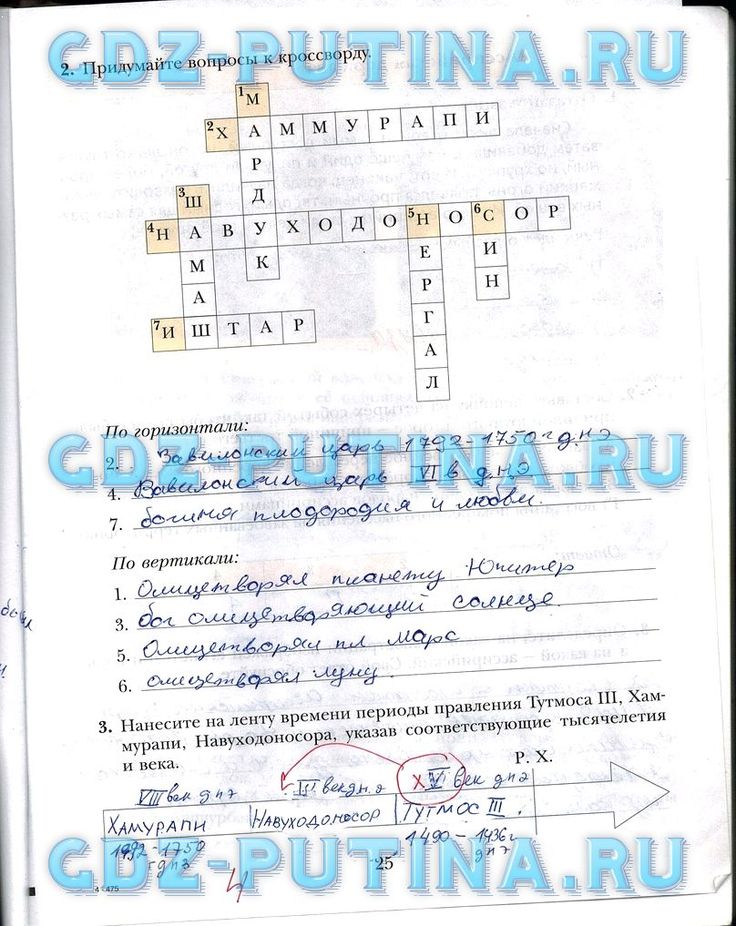 GDZ-PUTINA.RU
2. Придумайте вопросы к кроссворду.
1М
2Х А М М У Р А П И
Р
3Ш Д
4Н А В У Х О Д О 5Н О 6С О Р
М К Е И
А Р Н
7И Ш Т А Р Г
А
Л
По горизонтали:
GDZ-PUTINA.RU
2. Вавилонский царь 1792-1750 г д.н э
4. Вавилонский царь VI в д.нэ
7. богиня плодородия и любви.
По вертикали:
1. Олицетворял планету Юпитер
3. бог олицетворяющий солнце.
5. Олицетворял пл марс
6. олицетворял луну.
3. Нанесите на ленту времени периоды правления Тутмоса III, Хам-
мурапи, Навуходоносора, указав соответствующие тысячелетия
и века.
Р. Х.
VIII век д н э век д н. э X век д н э
ХАМУРАПИ НАВУХОДОНОСОР ТУТМОС III.
1792-1750 г д н э 1490 - 1436 г д н э
GDZ-PUTINA.RU
25
4
4 475